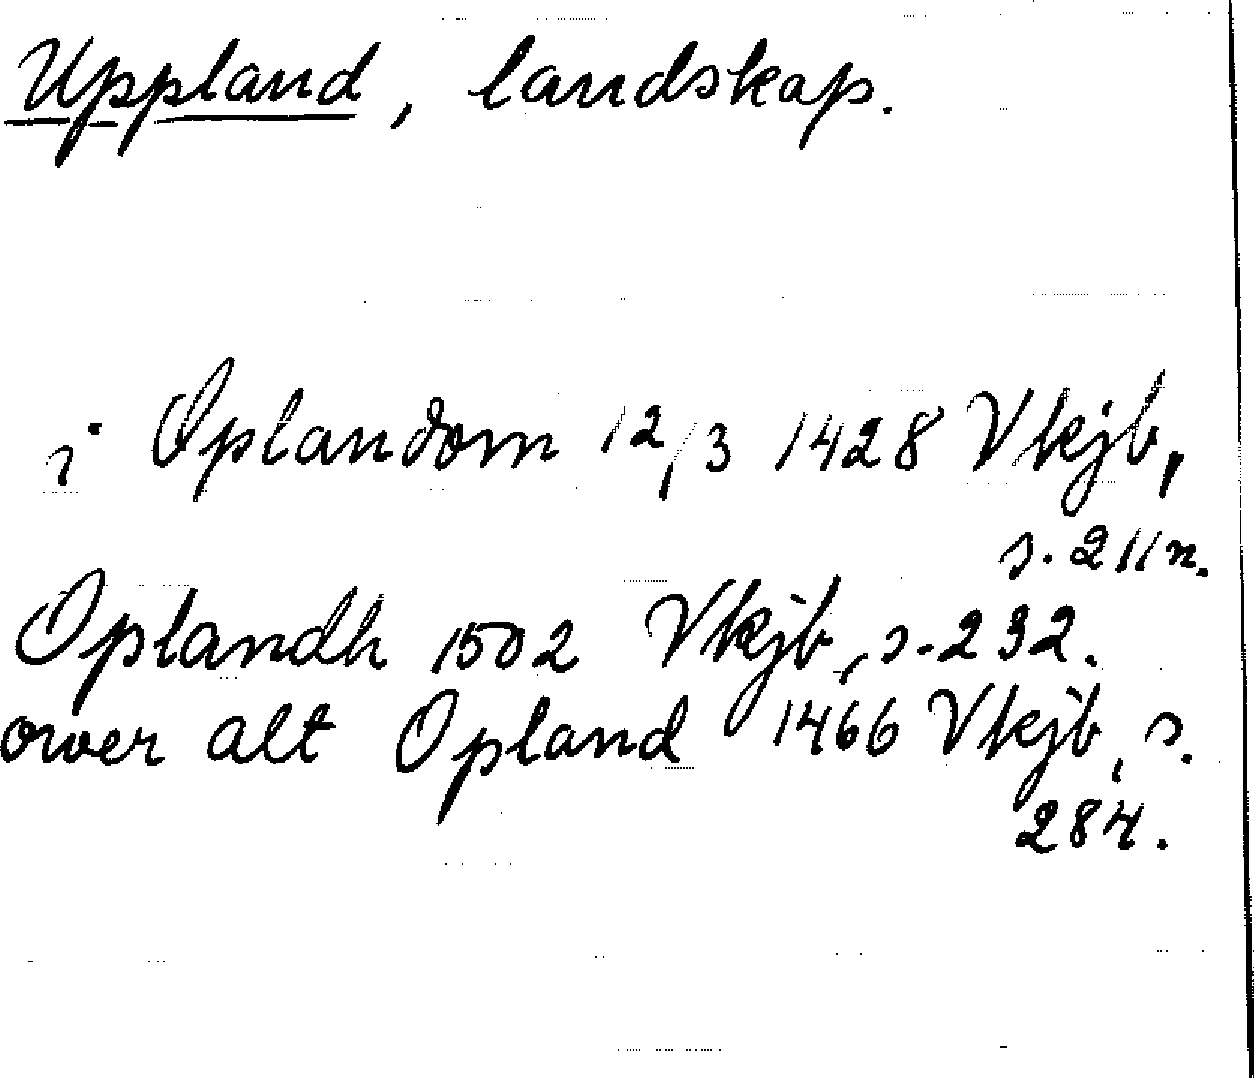 Uppland, landskap.
i Oplandom 12/3 1428 Vkjb,
s. 211 n.
Oplandh 1502 Vkjb, s. 232.
ower alt Opland 1466 Vkjb, s.
284.